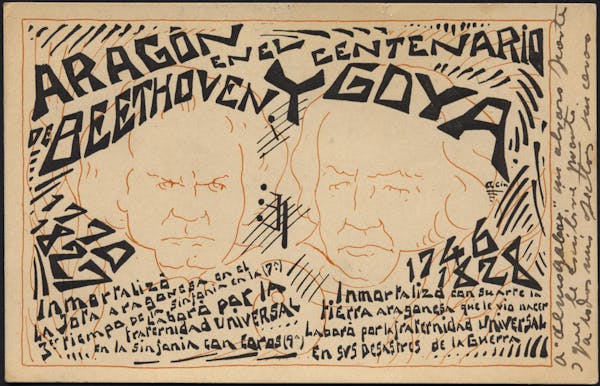 ARAGÓN EN EL CENTENARIO
DE BEETHOVEN Y GOYA
1770
1827
Inmortalizó
La Jota aragonesa en el
3er tiempo de la sinfonía en la (7ª)
Laboró por la
fraternidad UNIVERSAL
en la sinfonía con coros (9ª)
1746
1828
Inmortalizó con su arte la
tierra aragonesa que le vió nacer
Laboró por la fraternidad UNIVERSAL
en sus DESASTRES de la Guerra